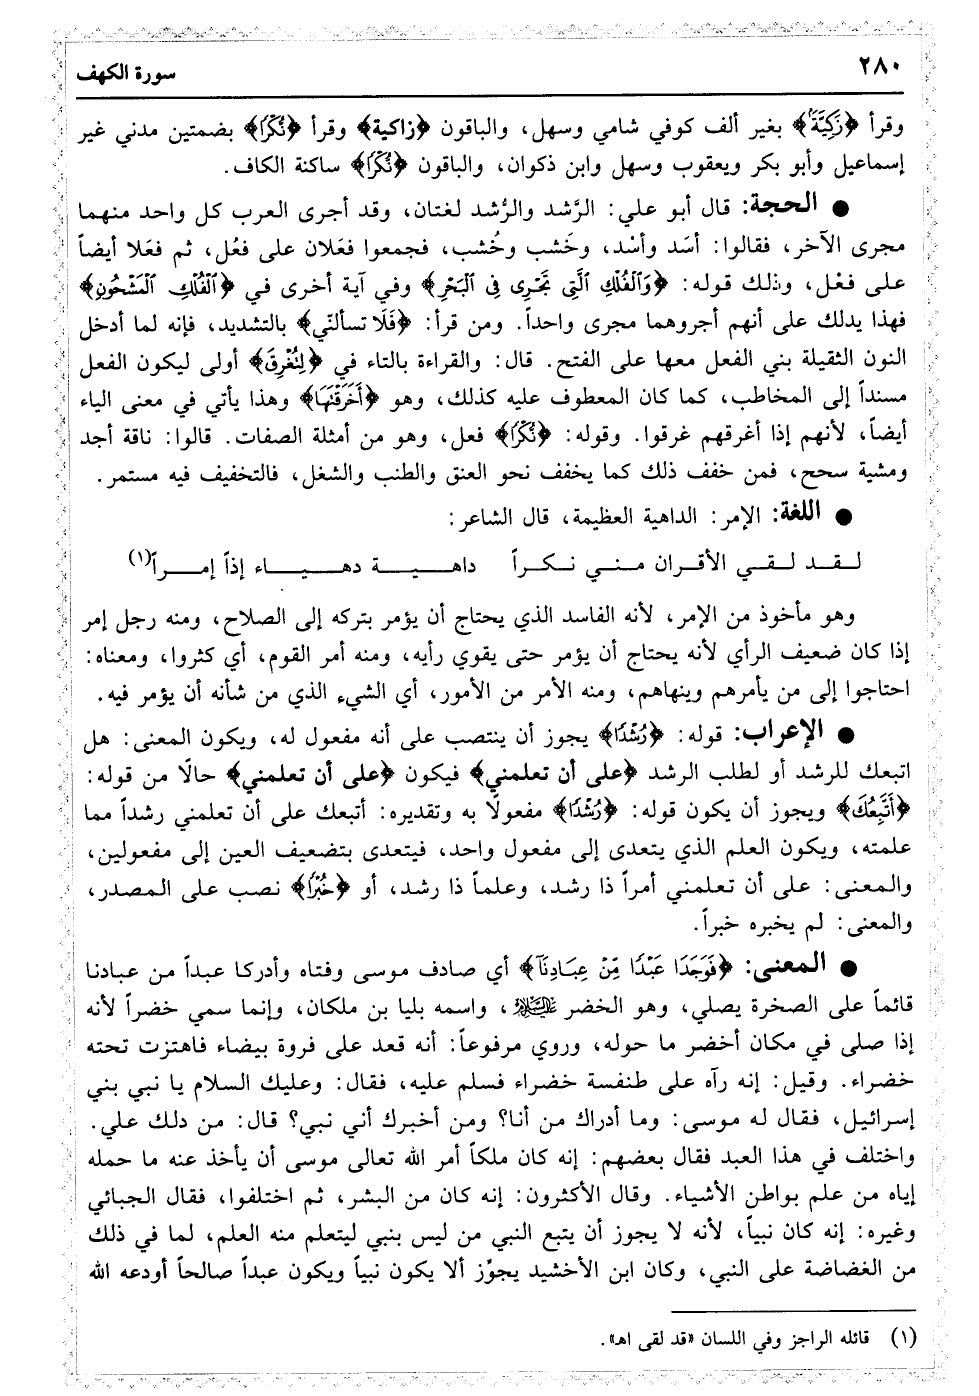 ٢٨٠
سورة الكهف
وقرأ ﴿زَكِيَّةً﴾ بغير ألف كوفي شامي وسهل، والباقون ﴿زاكية﴾ وقرأ ﴿نُّكْرًا﴾ بضمتين مدني غير
إسماعيل وأبو بكر ويعقوب وسهل وابن ذكوان، والباقون ﴿نُّكْرًا﴾ ساكنة الكاف.
● الحجة: قال أبو علي: الرَّشد والرُّشد لغتان، وقد أجرى العرب كل واحد منهما
مجرى الآخر، فقالوا: أسَد وأسْد، وخَشب وخُشب، فجمعوا فعَلان على فعُل، ثم فعَلا أيضاً
على فعْل، وذلك قوله: ﴿وَٱلْفُلْكِ ٱلَّتِى تَجْرِى فِى ٱلْبَحْرِ﴾ وفي آية أخرى في ﴿ٱلْفُلْكِ ٱلْمَشْحُونِ﴾
فهذا يدلك على أنهم أجروهما مجرى واحداً. ومن قرأ: ﴿فَلَا تسألنّي﴾ بالتشديد، فإنه لما أدخل
النون الثقيلة بني الفعل معها على الفتح. قال: والقراءة بالتاء في ﴿لِتُغْرِقَ﴾ أولى ليكون الفعل
مسنداً إلى المخاطب، كما كان المعطوف عليه كذلك، وهو ﴿أَخَرَقْتَهَا﴾ وهذا يأتي في معنى الياء
أيضاً، لأنهم إذا أغرقهم غرقوا. وقوله: ﴿نُّكْرًا﴾ فعل، وهو من أمثلة الصفات. قالوا: ناقة أجد
ومشية سجح، فمن خفف ذلك كما يخفف نحو العنق والطنب والشغل، فالتخفيف فيه مستمر.
● اللغة: الإمر: الداهية العظيمة، قال الشاعر:
لقد لقي الأقران مني نكراً داهية دهياء إذاً إمراً(١)
وهو مأخوذ من الإمر، لأنه الفاسد الذي يحتاج أن يؤمر بتركه إلى الصلاح، ومنه رجل إمر
إذا كان ضعيف الرأي لأنه يحتاج أن يؤمر حتى يقوي رأيه، ومنه أمر القوم، أي كثروا، ومعناه:
احتاجوا إلى من يأمرهم وينهاهم، ومنه الأمر من الأمور، أي الشيء الذي من شأنه أن يؤمر فيه.
● الإعراب: قوله: ﴿رُشْدًا﴾ يجوز أن ينتصب على أنه مفعول له، ويكون المعنى: هل
اتبعك للرشد أو لطلب الرشد ﴿على أن تعلمني﴾ فيكون ﴿على أن تعلمني﴾ حالًا من قوله:
﴿أَتَّبِعُكَ﴾ ويجوز أن يكون قوله: ﴿رُشْدًا﴾ مفعولًا به وتقديره: أتبعك على أن تعلمني رشداً مما
علمته، ويكون العلم الذي يتعدى إلى مفعول واحد، فيتعدى بتضعيف العين إلى مفعولين،
والمعنى: على أن تعلمني أمراً ذا رشد، وعلماً ذا رشد، أو ﴿خُبْرًا﴾ نصب على المصدر،
والمعنى: لم يخبره خبراً.
● المعنى: ﴿فَوَجَدَا عَبْدًا مِّنْ عِبَادِنَآ﴾ أي صادف موسى وفتاه وأدركا عبداً من عبادنا
قائماً على الصخرة يصلي، وهو الخضر عليه السلام، واسمه بليا بن ملكان، وإنما سمي خضراً لأنه
إذا صلى في مكان أخضر ما حوله، وروي مرفوعاً: أنه قعد على فروة بيضاء فاهتزت تحته
خضراء. وقيل: إنه رآه على طنفسة خضراء فسلم عليه، فقال: وعليك السلام يا نبي بني
إسرائيل، فقال له موسى: وما أدراك من أنا؟ ومن أخبرك أني نبي؟ قال: من دلك علي.
واختلف في هذا العبد فقال بعضهم: إنه كان ملكاً أمر الله تعالى موسى أن يأخذ عنه ما حمله
إياه من علم بواطن الأشياء. وقال الأكثرون: إنه كان من البشر، ثم اختلفوا، فقال الجبائي
وغيره: إنه كان نبياً، لأنه لا يجوز أن يتبع النبي من ليس بنبي ليتعلم منه العلم، لما في ذلك
من الغضاضة على النبي، وكان ابن الأخشيد يجوّز ألا يكون نبياً ويكون عبداً صالحاً أودعه الله
(١) قائله الراجز وفي اللسان «قد لقى اهـ».